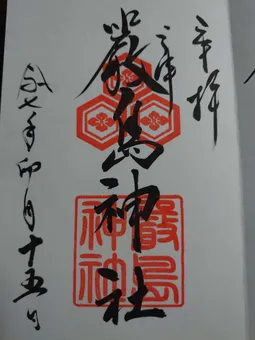 奉拝
嚴島神社
七年卯月十五日
嚴島
神社